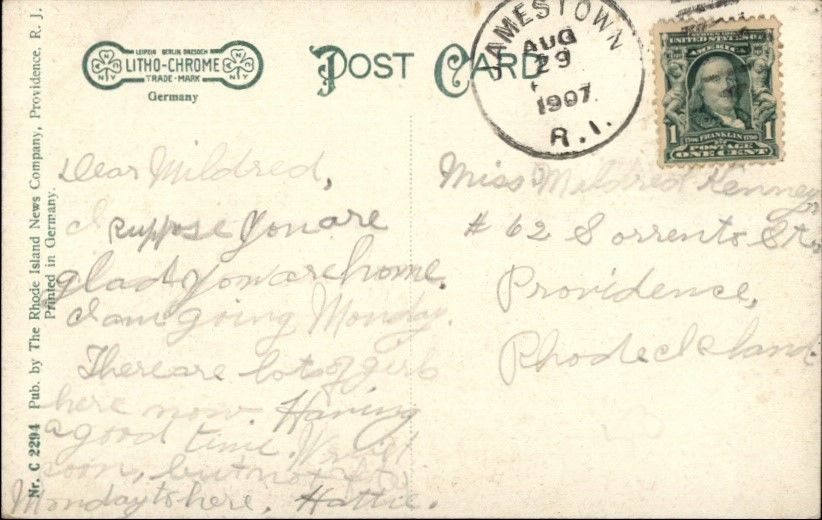 LEIPZIG BERLIN DRESDEN
LITHO-CHROME
TRADE-MARK
NY NY
Germany
POST CARD
JAMESTOWN
AUG
29
1907
R.I.
UNITED STATES OF
AMERICA
1 1706 FRANKLIN 1790 1
POSTAGE
ONE CENT
Nr. C 2294 Pub. by The Rhode Island News Company, Providence, R. J.
Printed in Germany.
Dear Mildred,
I suppose you are
glad you are home.
I am going Monday.
There are lots of girls
here now. Having
a good time. Write
soon, but not after
Monday to here. Hattie.
Miss Mildred Kenney,
# 62 Sorrento St.,
Providence,
Rhode Island.